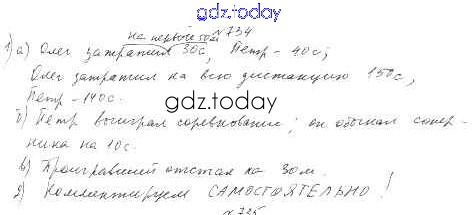 gdz.today
на первые 50м №734
1) а) Олег затратил 30с, Петр - 40с;
Олег затратил на всю дистанцию 150с,
Петр - 140с.
gdz.today
б) Петр выиграл соревнование; он обогнал сопер-
ника на 10с.
в) Проигравший отстал на 30м.
2) Комментируем САМОСТОЯТЕЛЬНО!
№735
gdz.today